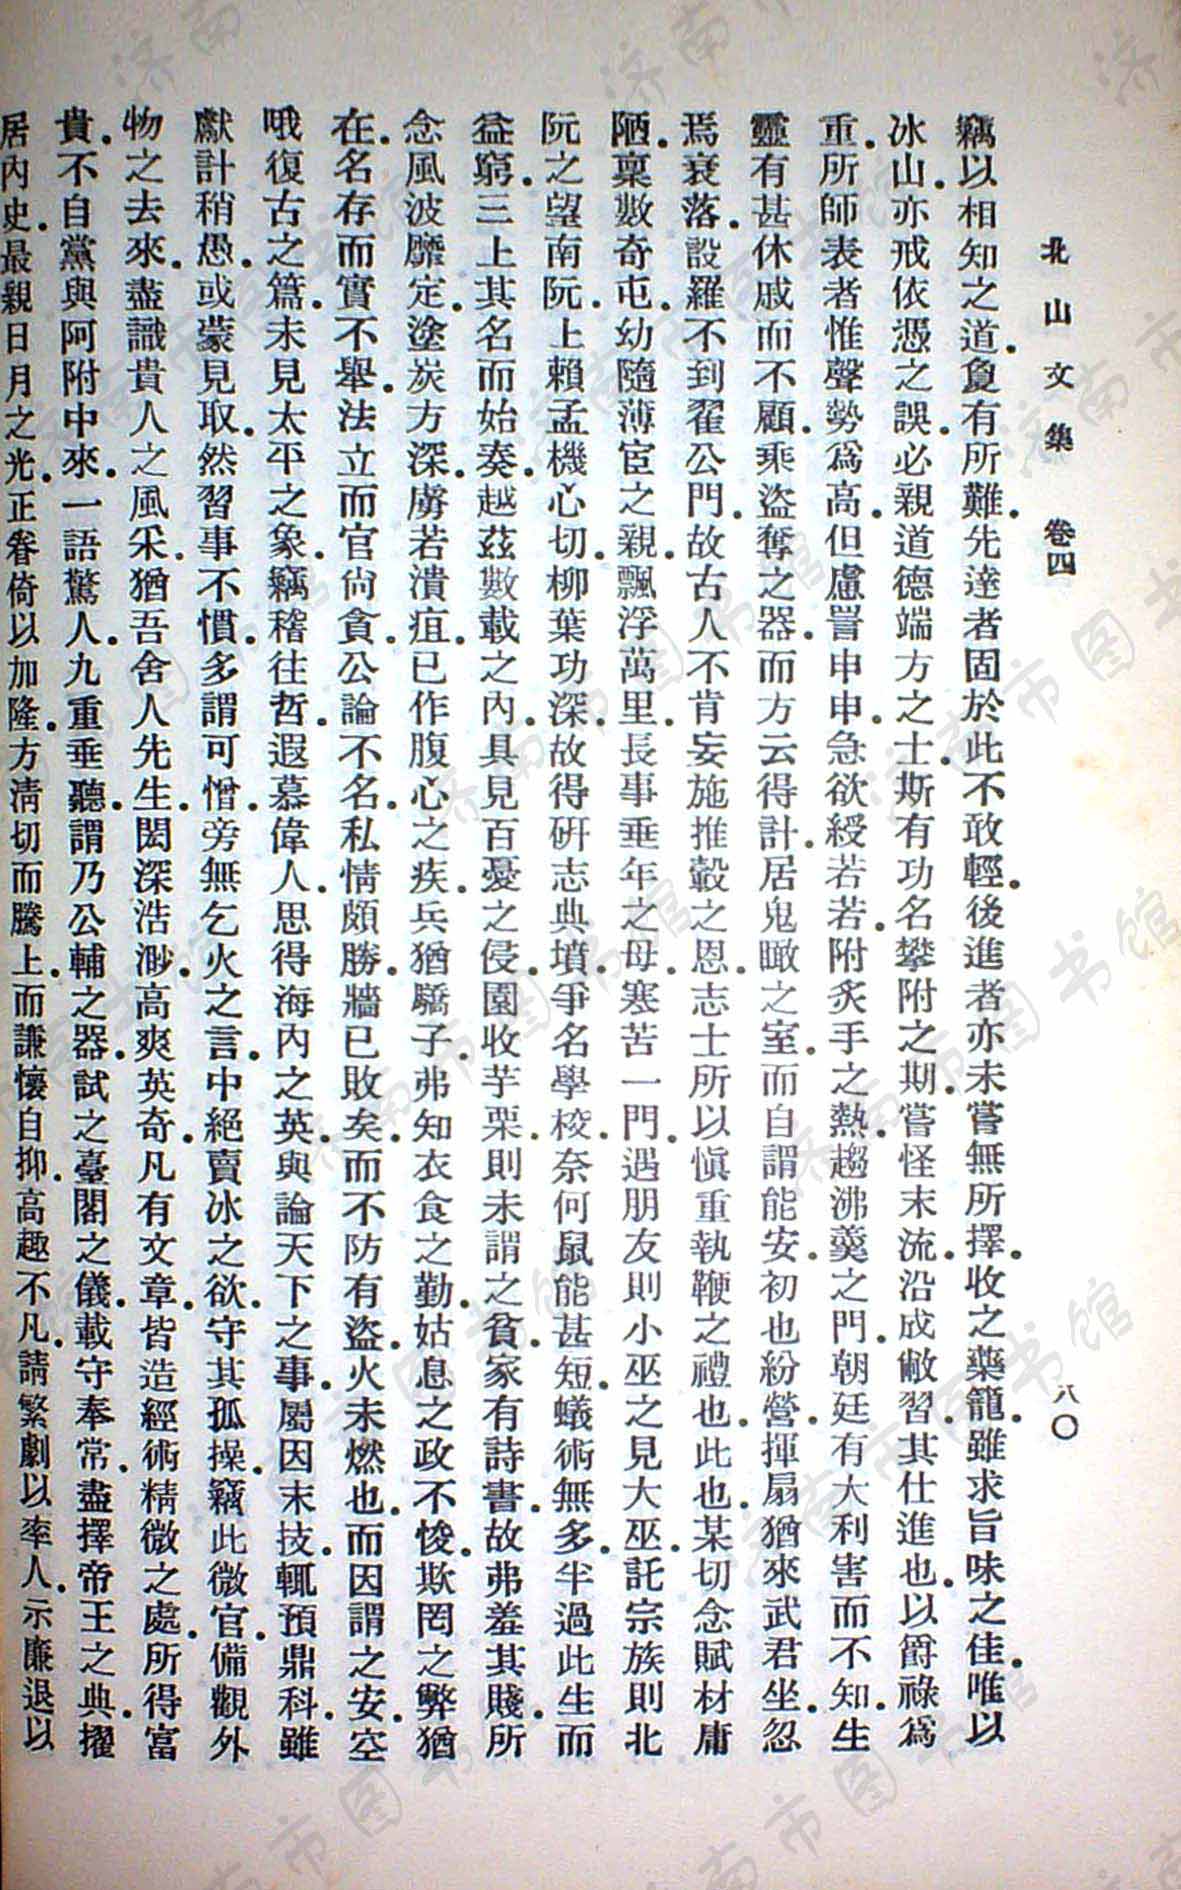 北山文集 卷四
八〇
竊以相知之道.負有所難.先達者固於此不敢輕.後進者亦未嘗無所擇.收之藥籠.雖求旨味之佳.唯以
冰山.亦戒依憑之誤.必親道德端方之士.斯有功名攀附之期.嘗怪末流.沿成敝習.其仕進也.以爵祿爲
重.所師表者惟聲勢爲高.但慮詈申申.急欲綬若若.附炙手之熱.趨沸羹之門.朝廷有大利害而不知.生
靈有甚休戚而不顧.乘盜奪之器.而方云得計.居鬼瞰之室.而自謂能安.初也紛營.揮扇猶來武君坐.忽
焉衰落.設羅不到翟公門.故古人不肯妄施推轂之恩.志士所以愼重執鞭之禮也.此也.某切念賦材庸
陋.稟數奇屯.幼隨薄宦之親.飄浮萬里.長事垂年之母.寒苦一門.遇朋友則小巫之見大巫.託宗族則北
阮之望南阮.上賴孟機心切.柳葉功深.故得硏志典墳.爭名學校.奈何鼠能甚短.蟻術無多.半過此生而
益窮.三上其名而始奏.越茲數載之內.具見百憂之侵.園收芋栗.則未謂之貧.家有詩書.故弗羞其賤.所
念風波靡定.塗炭方深.虜若潰疽.已作腹心之疾.兵猶驕子.弗知衣食之勤.姑息之政不悛.欺罔之弊猶
在.名存而實不舉.法立而官尙貪.公論不名.私情頗勝.牆已敗矣.而不防有盜.火未燃也.而因謂之安.空
哦復古之篇.未見太平之象.竊稽往哲.遐慕偉人.思得海內之英.與論天下之事.屬因末技.輒預鼎科.雖
獻計稍愚.或蒙見取.然習事不慣.多謂可憎.旁無乞火之言.中絕賣冰之欲.守其孤操.竊此微官.備觀外
物之去來.盡識貴人之風采.猶吾舍人先生.閎深浩渺.高爽英奇.凡有文章.皆造經術精微之處.所得富
貴.不自黨與阿附中來.一語驚人.九重垂聽.謂乃公輔之器.試之臺閣之儀.載守奉常.盡擇帝王之典.擢
居內史.最親日月之光.正眷倚以加隆.方淸切而騰上.而謙懷自抑.高趣不凡.請繁劇以率人.示廉退以